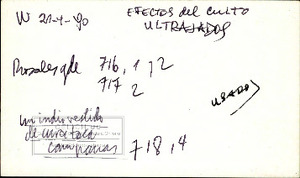 W 21-4-90
EFECTOS del CULTO
ULTRAJADOS
Rosales gde 716, 1 y 2
717 2
USADOS
un indio vestido
de
campanas 718, 4